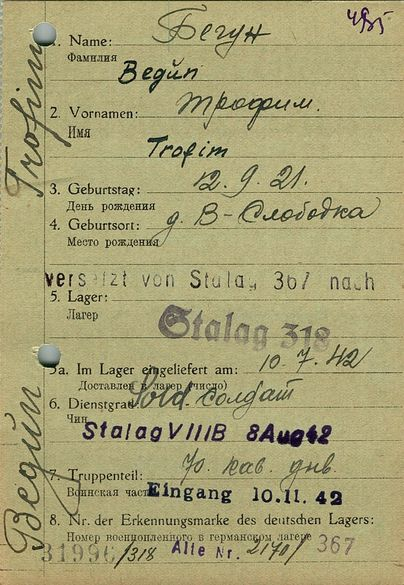 495
1. Name: Бегун
Фамилия
Begün
2. Vornamen: Трофим.
Имя
Trofim
3. Geburtstag: 12.9.21.
День рождения
4. Geburtsort: д. В-Слободка
Место рождения
versetzt von Stalag 367 nach
5. Lager:
Лагер
Stalag 318
5a. Im Lager eingeliefert am: 10.7.42
Доставлен в лагер (число)
6. Dienstgrad: Sold. солдат
Чин
Stalag VIIIB 8 Aug 42
7. Truppenteil: 70. кав. див.
Воинская часть
Eingang 10.11.42
8. Nr. der Erkennungsmarke des deutschen Lagers:
Номер военнопленного в германском лагере
31996/318 Alte Nr. 21701/367
Trofim
Begün